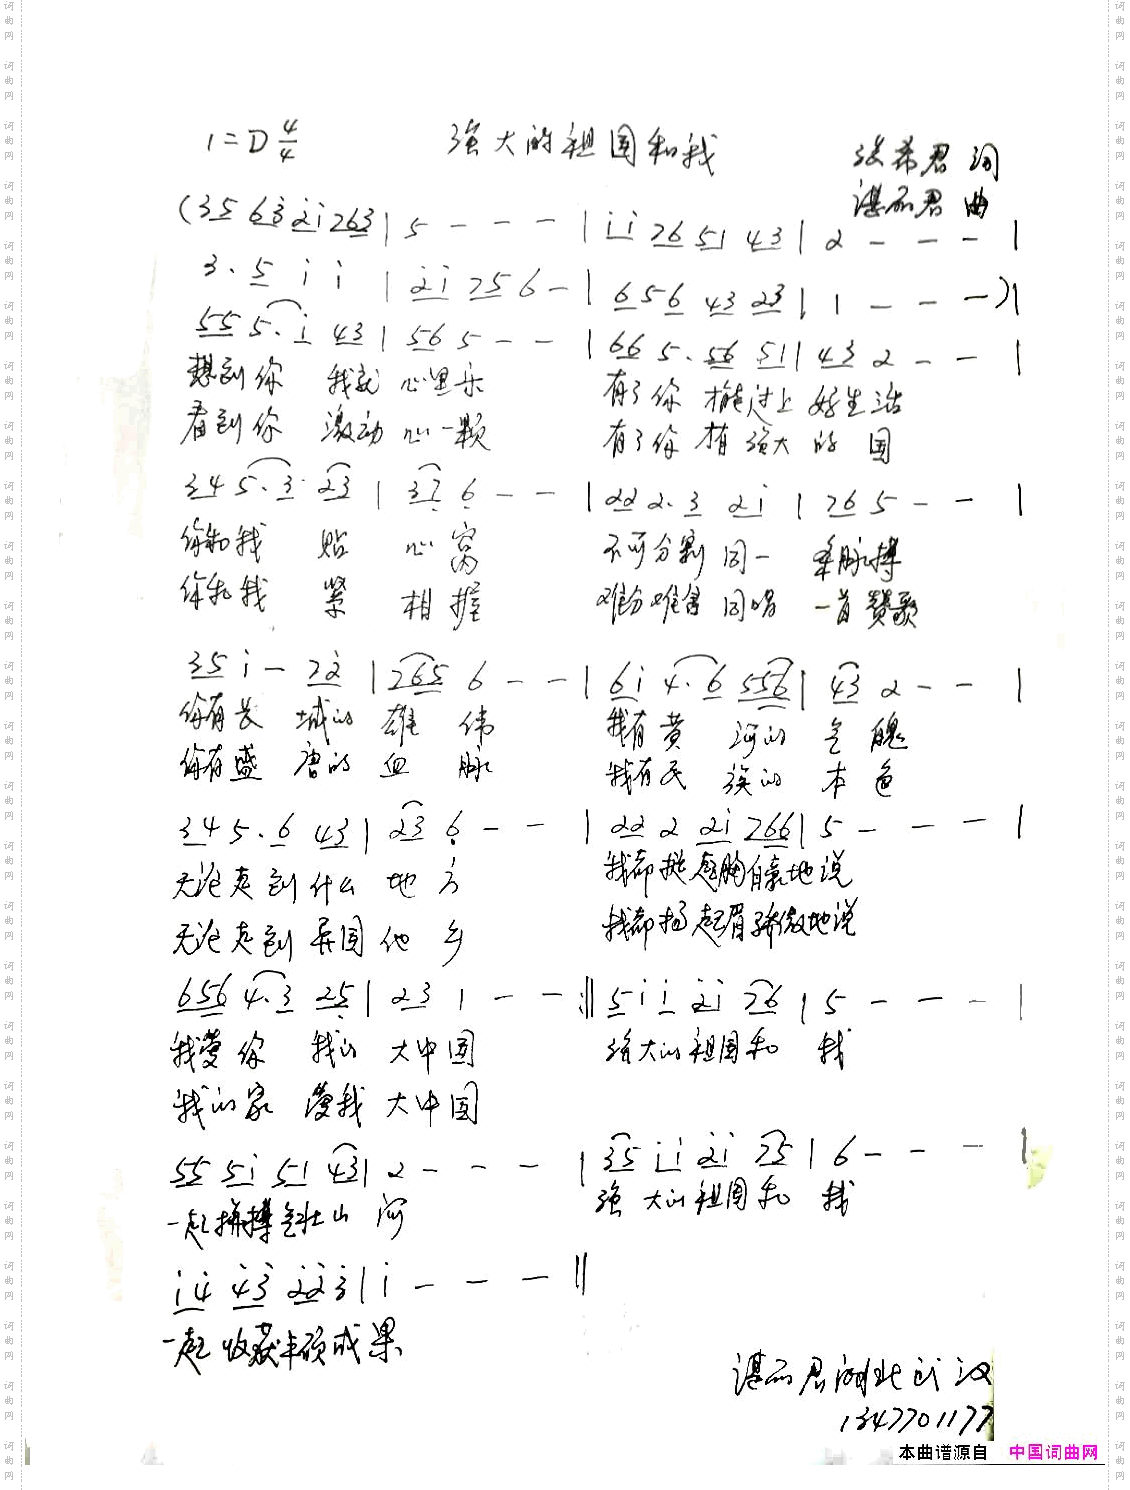 1=D 4/4 强大的祖国和我
张希君 词
湛丽君 曲
(35 63 2i 263 | 5 - - - | ii 76 51 43 | 2 - - - |
3. 5 i i | 2i 75 6 - | 656 43 23 | 1 - - -) |
55 5. i 43 | 56 5 - - | 66 5. 56 51 | 43 2 - - |
想到你 我就 心里乐 有了你 才能过上 好生活
看到你 激动 心一颗 有了你 才有 强大 的 国
345. 3 23 | 37 6 - - | 22 2. 3 2i | 76 5 - - |
你和我 贴 心 窝 不可分割 同一 条脉搏
你和我 紧 相 握 难分难舍 同唱 一首赞歌
35 i - 72 | 765 6 - - | 6i 4. 6 556 | 43 2 - - |
你有长 城的 雄 伟 我有黄 河的 气 魄
你有盛 唐的 血 脉 我有民 族的 本 色
345. 6 43 | 23 6 - - | 22 2 2i 766 | 5 - - - |
无论走到什么 地 方 我都挺起胸自豪地说
无论走到异国他 乡 我都扬起眉骄傲地说
656 4. 3 25 | 23 1 - - :‖ 5i i 2i 76 | 5 - - - |
我爱你 我的 大中国 强大的祖国和 我
我的家 爱我 大中国
55 5i 51 43 | 2 - - - | 35 ii 2i 75 | 6 - - - |
一起拼搏气壮山 河 强 大的祖国和 我
i4 43 223 | i - - - ‖
一起 收获丰硕成果
湛丽君湖北武汉
1347701177
本曲谱源自 中国词曲网
词曲网